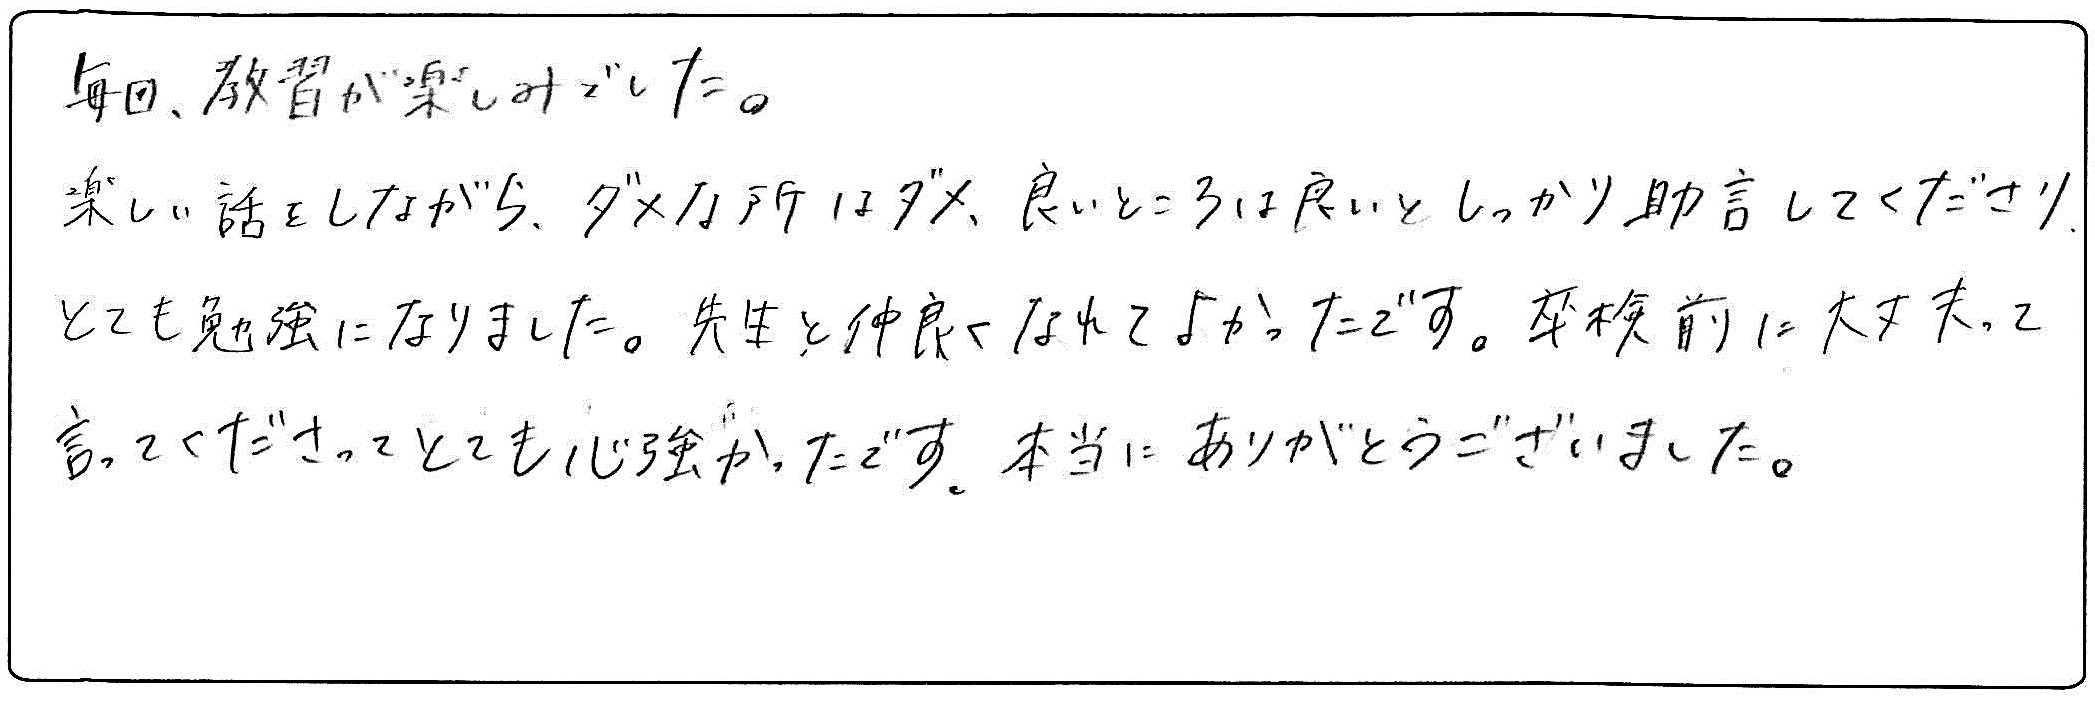 毎回、教習が楽しみでした。
楽しい話をしながら、ダメな所はダメ、良いところは良いとしっかり助言してくださり、
とても勉強になりました。先生と仲良くなれてよかったです。卒検前に大丈夫って
言ってくださってとても心強かったです。本当にありがとうございました。